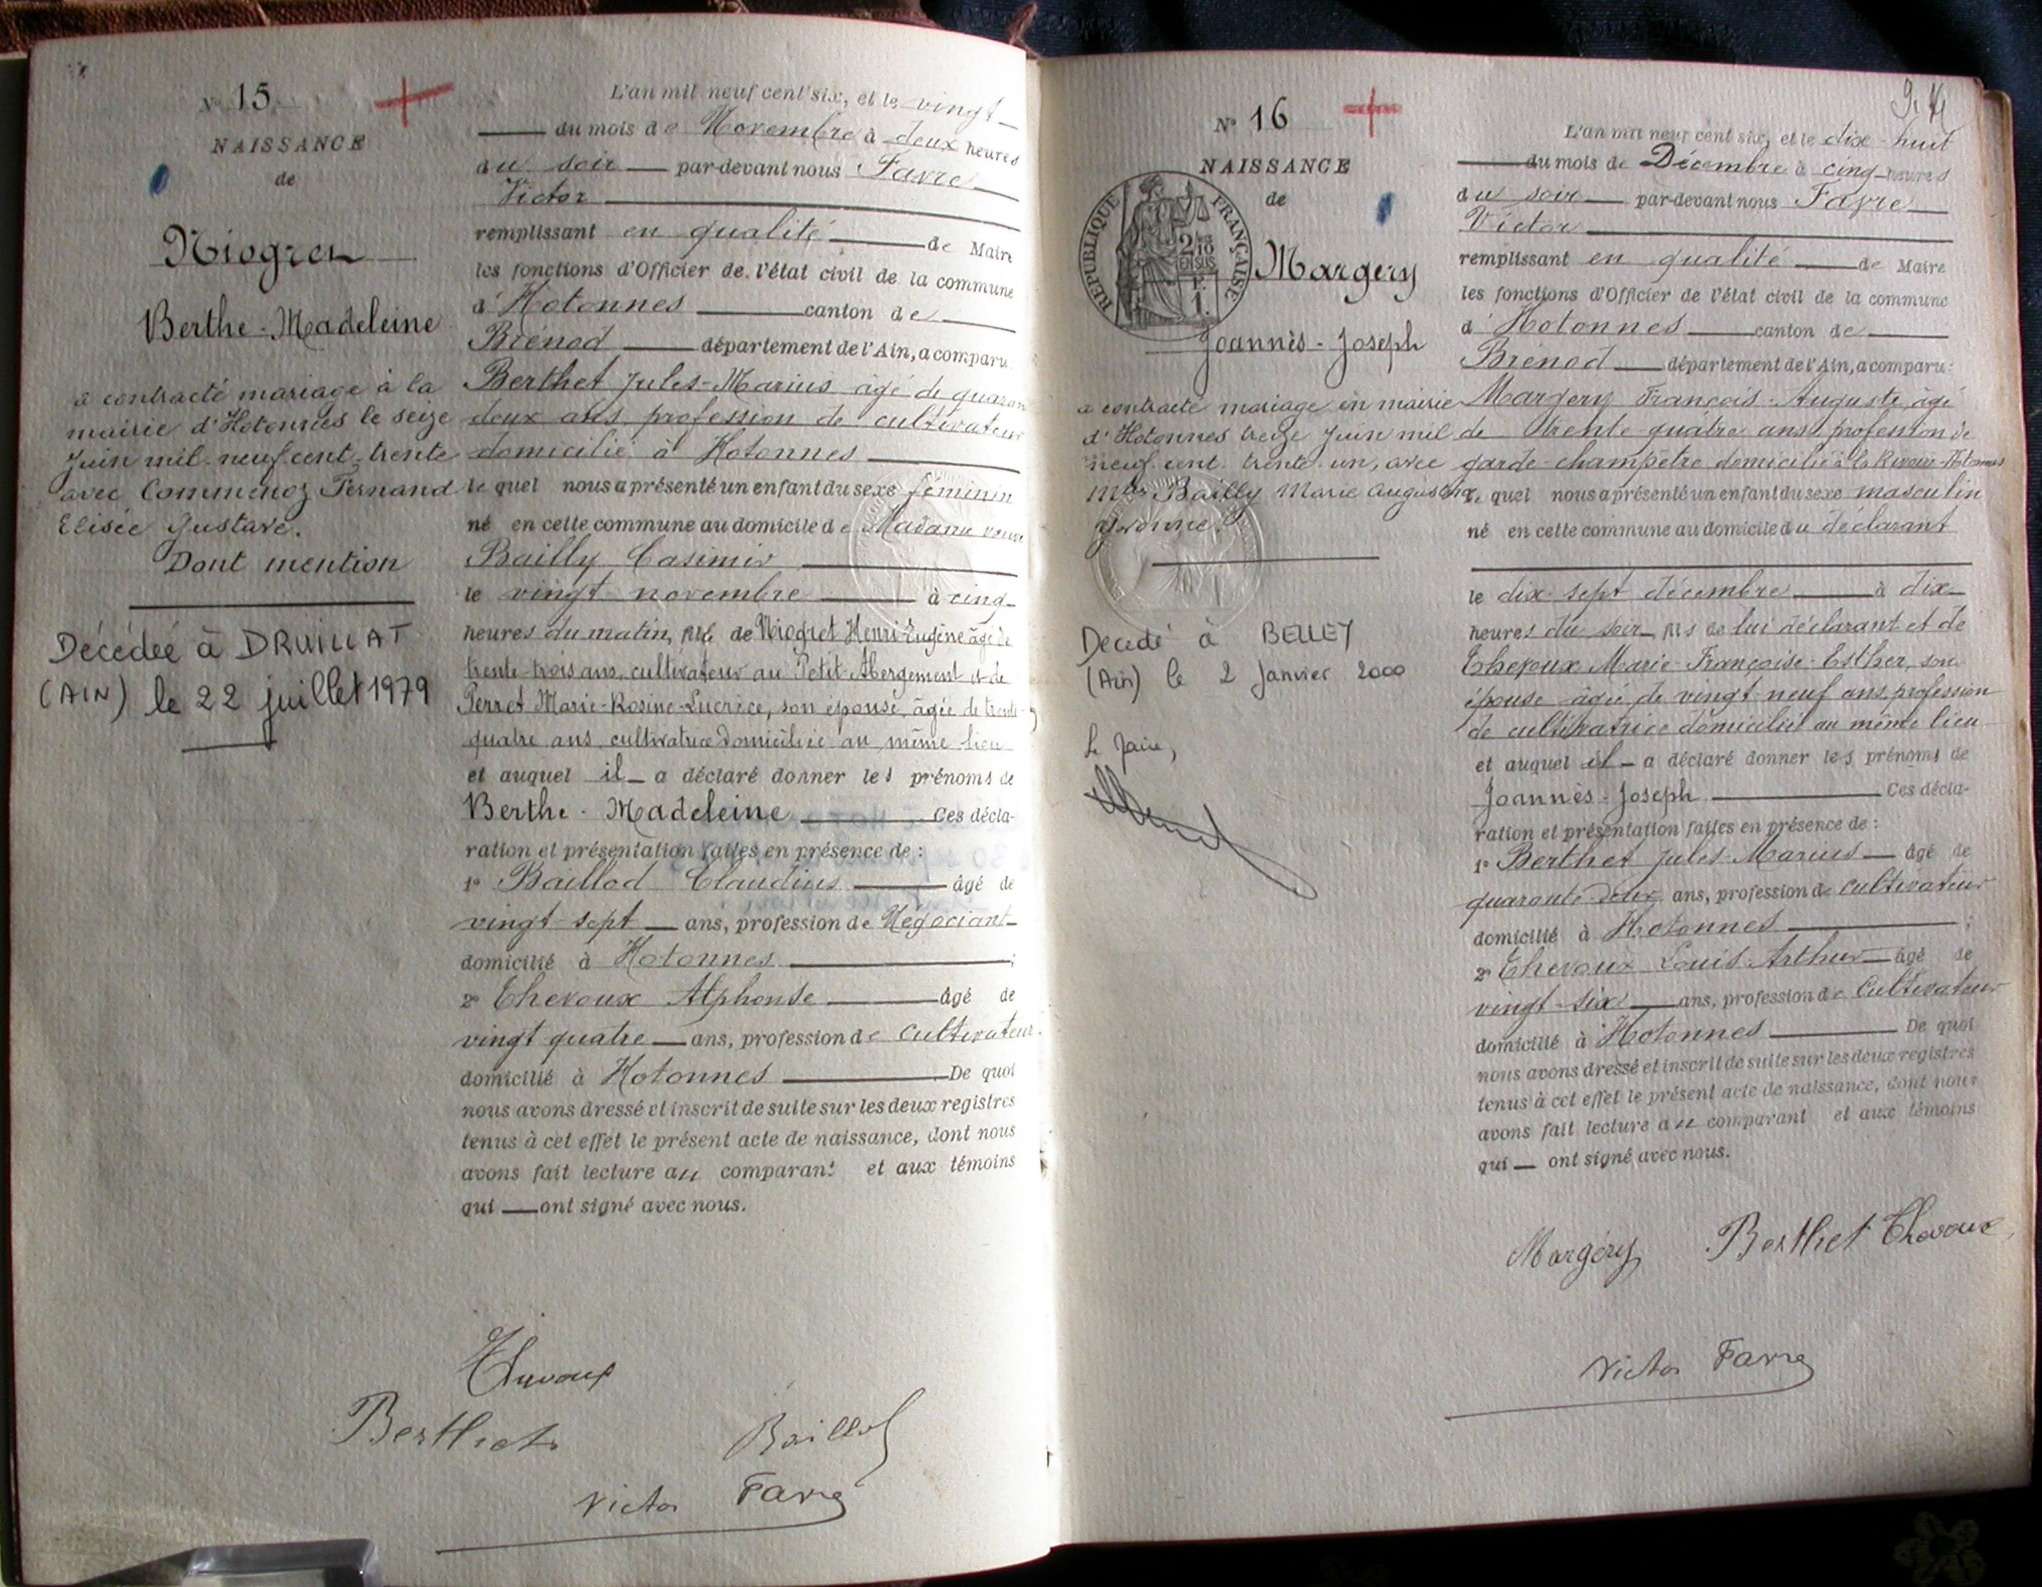 N° 15
NAISSANCE
de
Niogret
Berthe-Madeleine
a contracté mariage à la
mairie d'Hotonnes le seize
Juin mil-neuf cent-trente
avec Commenoz Fernand
Elisée Gustave.
Dont mention
Décédée à DRUILLAT
(AIN) le 22 juillet 1979
L'an mil neuf cent six, et le vingt
du mois de Novembre à deux heures
du soir par-devant nous Favre
Victor
remplissant en qualité de Maire
les fonctions d'Officier de l'état civil de la commune
d'Hotonnes canton de
Brénod département de l'Ain, a comparu
Berthet Jules-Marius âgé de quaran
deux ans profession de cultivateur
domicilié à Hotonnes
le quel nous a présenté un enfant du sexe féminin
né en cette commune au domicile de Madame veuve
Bailly Casimir
le vingt novembre à cinq
heures du matin, fille de Niogret Henri-Eugène âgé de
trente-trois ans, cultivateur au Petit-Abergement et de
Perret Marie-Rosine-Lucrèce, son épouse, âgée de trente-
quatre ans, cultivatrice domiciliée au même lieu
et auquel il a déclaré donner les prénoms de
Berthe-Madeleine Ces décla-
ration et présentation faites en présence de :
1° Baillod Claudius âgé de
vingt-sept ans, profession de Négociant
domicilié à Hotonnes ;
2° Thevoux Alphonse âgé de
vingt quatre ans, profession de cultivateur
domicilié à Hotonnes De quoi
nous avons dressé et inscrit de suite sur les deux registres
tenus à cet effet le présent acte de naissance, dont nous
avons fait lecture au comparant et aux témoins
qui ont signé avec nous.
Thevoux
Berthet Baillod
Victor Favre
N° 16
NAISSANCE
de
RÉPUBLIQUE FRANÇAISE
2/10 EN SUS
1 F.
Margery
Joannès-Joseph
a contracté mariage en mairie
d'Hotonnes treize Juin mil
neuf-cent-trente-un, avec
Mlle Bailly Marie Augustine
Yvonne.
Décédé à BELLEY
(Ain) le 2 Janvier 2000
Le Maire,
L'an mil neuf cent six, et le dix-huit
du mois de Décembre à cinq heures
du soir par-devant nous Favre
Victor
remplissant en qualité de Maire
les fonctions d'Officier de l'état civil de la commune
d'Hotonnes canton de
Brénod département de l'Ain, a comparu :
Margery François-Auguste âgé
de trente-quatre ans, profession de
garde-champêtre domicilié à la Rivoire-Hotonnes
le quel nous a présenté un enfant du sexe masculin
né en cette commune au domicile du déclarant
le dix-sept décembre à dix
heures du soir, fils de lui déclarant et de
Thevoux Marie-Françoise-Esther, son
épouse âgée de vingt-neuf ans, profession
de cultivatrice domiciliée au même lieu
et auquel il a déclaré donner les prénoms de
Joannès-Joseph Ces décla-
ration et présentation faites en présence de :
1° Berthet Jules-Marius âgé de
quarante deux ans, profession de cultivateur
domicilié à Hotonnes ;
2° Thevoux Louis-Arthur âgé de
vingt-six ans, profession de Cultivateur
domicilié à Hotonnes De quoi
nous avons dressé et inscrit de suite sur les deux registres
tenus à cet effet le présent acte de naissance, dont nous
avons fait lecture au comparant et aux témoins
qui ont signé avec nous.
Margery Berthet Thevoux
Victor Favre